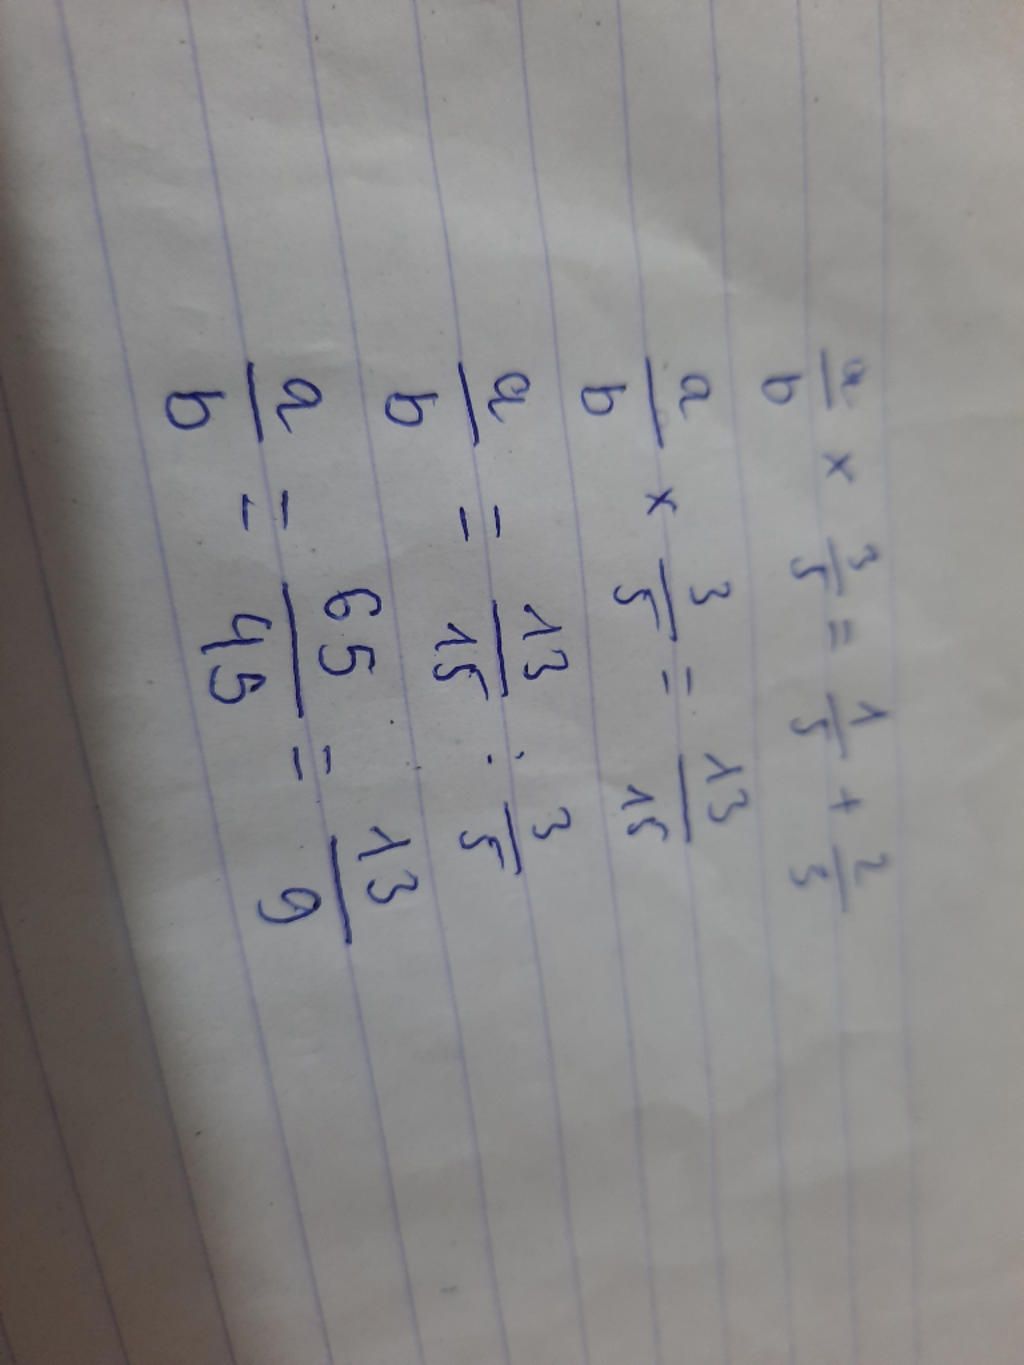 a/b × 3/5 = 1/5 + 2/3
a/b × 3/5 = 13/15
a/b = 13/15 : 3/5
a/b = 65/45 = 13/9